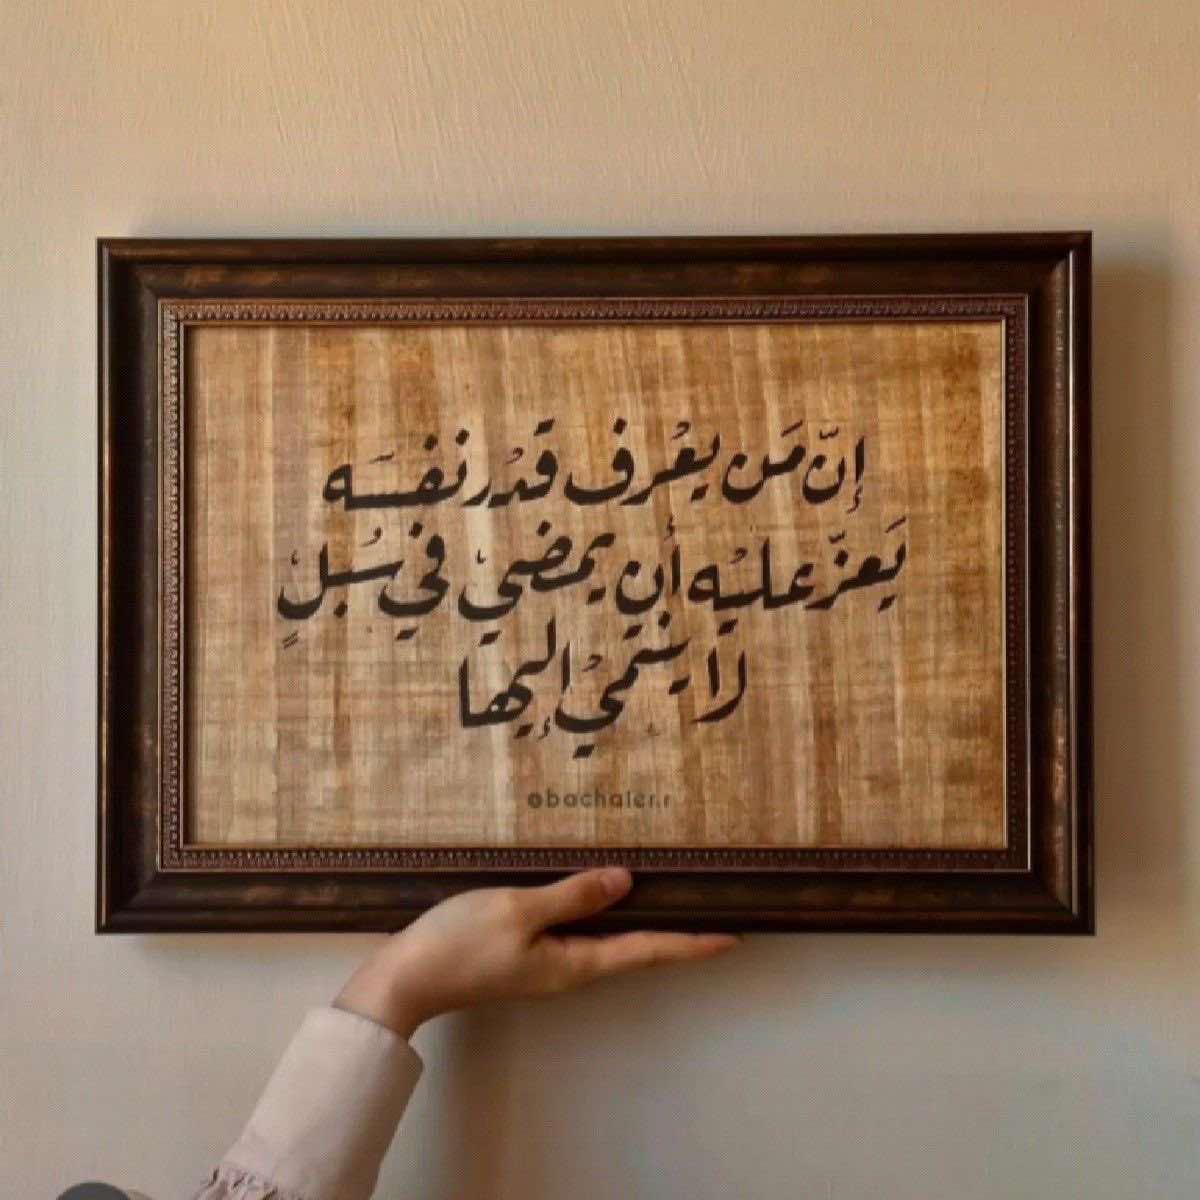 إنّ مَن يعْرف قدْر نفسَه
يَعزّ عليْه أن يمضيْ في سُبلٍ
لا ينتميْ إليها
@bachaler.r